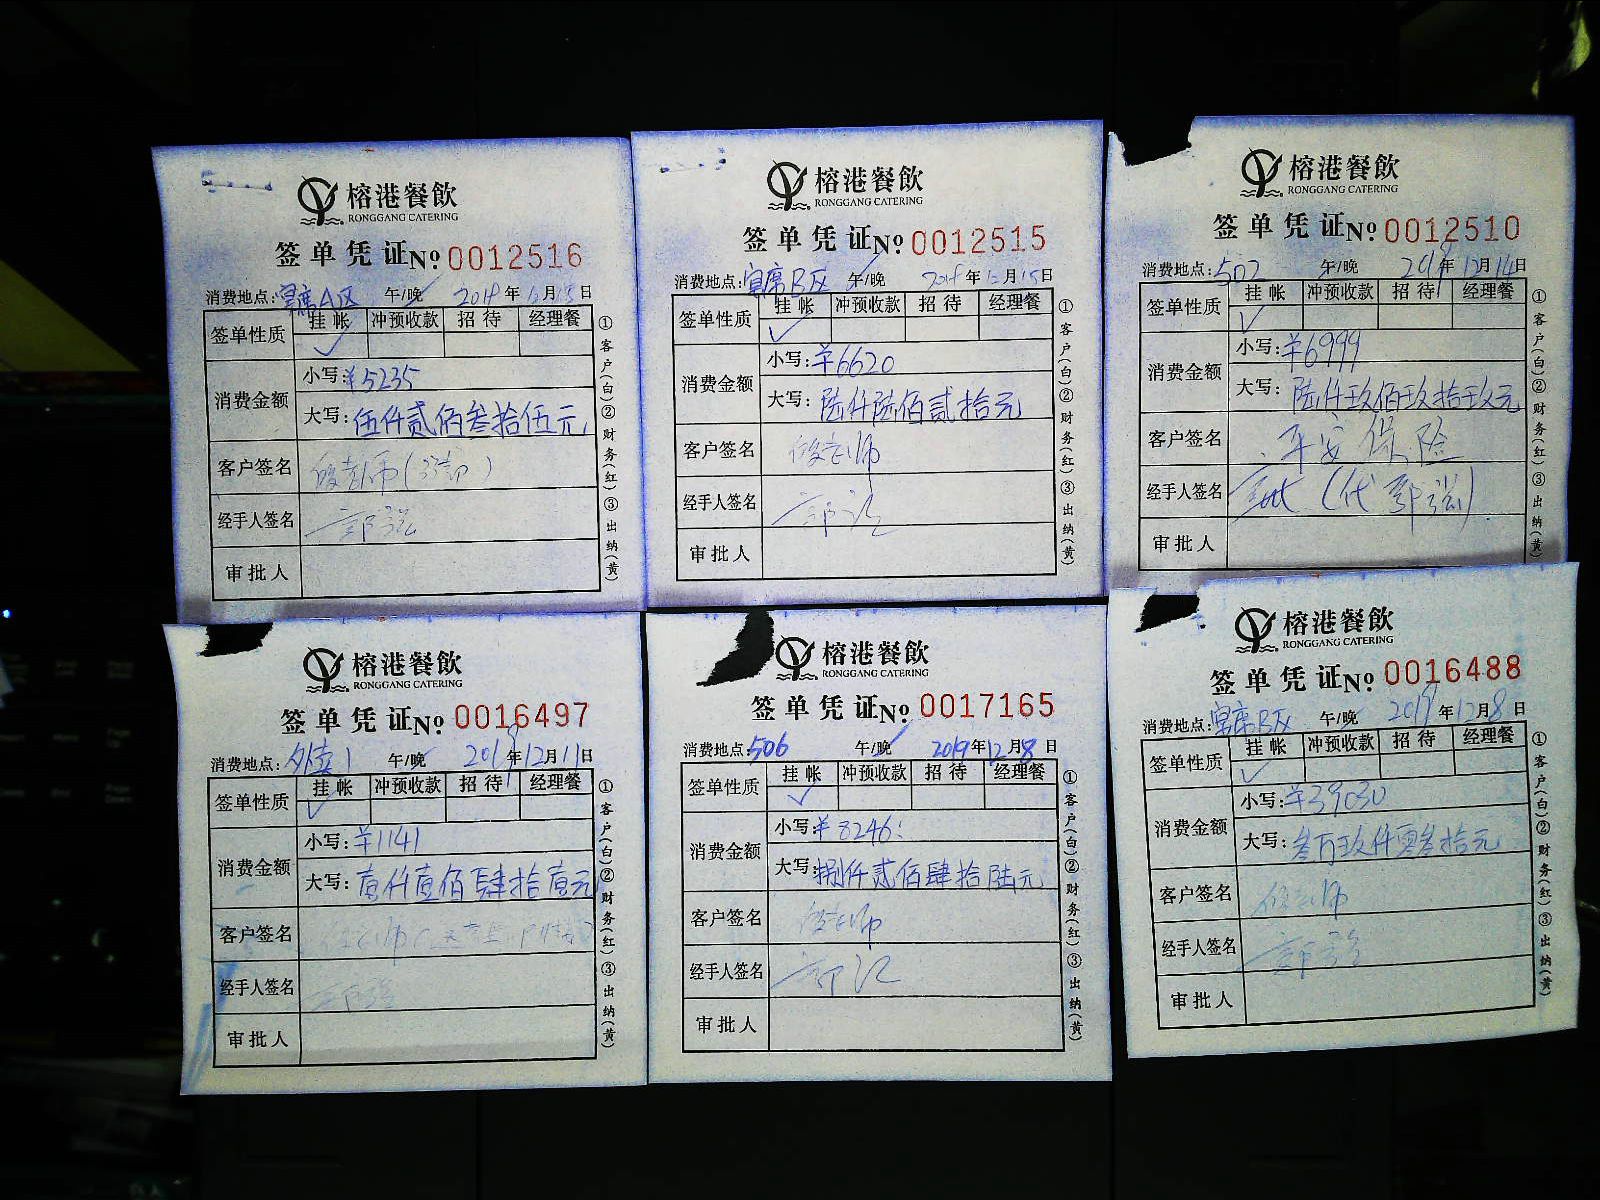 榕港餐飲
RONGGANG CATERING
签单凭证No 0012516
消费地点:宴席A区 午/晚 年 月 日
签单性质 挂帐 冲预收款 招待 经理餐
✓
消费金额 小写:¥5235
大写:伍仟贰佰叁拾伍元
客户签名
经手人签名
审批人
①客户(白)②财务(红)③出纳(黄)
榕港餐飲
RONGGANG CATERING
签单凭证No 0012515
消费地点:宴席B区 午/晚 年 月15日
签单性质 挂帐 冲预收款 招待 经理餐
✓
消费金额 小写:¥6620
大写:陆仟陆佰贰拾元
客户签名
经手人签名
审批人
①客户(白)②财务(红)③出纳(黄)
榕港餐飲
RONGGANG CATERING
签单凭证No 0012510
消费地点:502 午/晚 2019年12月14日
签单性质 挂帐 冲预收款 招待 经理餐
✓
消费金额 小写:¥6999
大写:陆仟玖佰玖拾玖元
客户签名 平安保险
经手人签名
审批人
①客户(白)②财务(红)③出纳(黄)
榕港餐飲
RONGGANG CATERING
签单凭证No 0016497
消费地点:外卖1 午/晚 2019年12月11日
签单性质 挂帐 冲预收款 招待 经理餐
✓
消费金额 小写:¥1141
大写:壹仟壹佰肆拾壹元
客户签名
经手人签名
审批人
①客户(白)②财务(红)③出纳(黄)
榕港餐飲
RONGGANG CATERING
签单凭证No 0017165
消费地点:506 午/晚 2019年12月8日
签单性质 挂帐 冲预收款 招待 经理餐
✓
消费金额 小写:¥8246
大写:捌仟贰佰肆拾陆元
客户签名
经手人签名
审批人
①客户(白)②财务(红)③出纳(黄)
榕港餐飲
RONGGANG CATERING
签单凭证No 0016488
消费地点:宴席B区 午/晚 2019年12月8日
签单性质 挂帐 冲预收款 招待 经理餐
✓
消费金额 小写:¥39030
大写:叁万玖仟零叁拾元
客户签名
经手人签名
审批人
①客户(白)②财务(红)③出纳(黄)